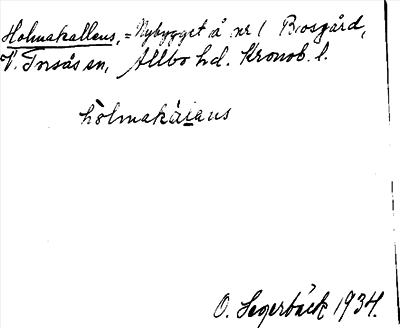 Holmakallens, = Nybygget å nr 1 Bosgård,
V. Torsås sn, Allbo hd. Kronob. l.
hòlmakáłans
O. Segerbäck 1934.